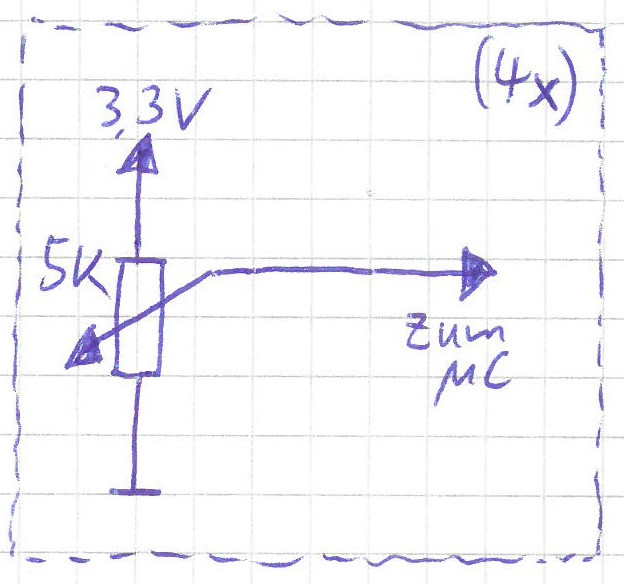 (4x)
3,3V
5K
zum
µC